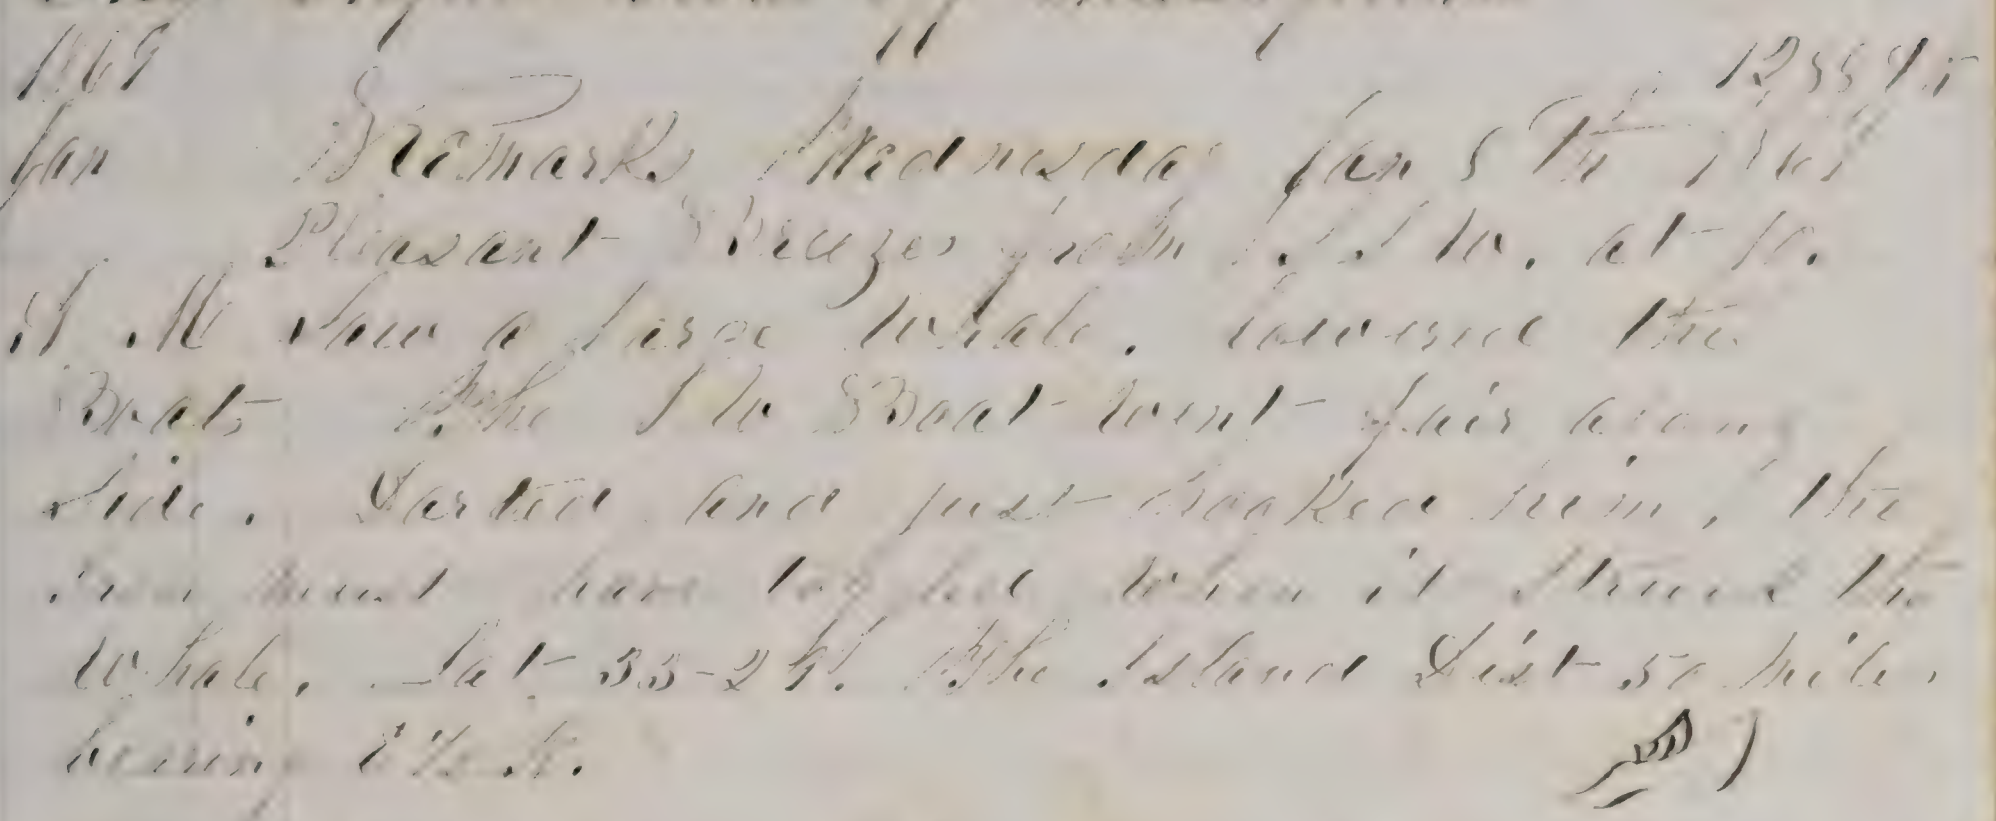 1869
Jan Remarks Wednesday Jan 5th
Pleasant Breezes from S. S W. at 10.
A M saw a large Whale. lowered the
Boats The S W Boat went fair along
Side. Darted and just crooked him, the
iron must have toggled when it struck the
Whale. Lat 33-24. The Island Dist 50 mile.
bearing